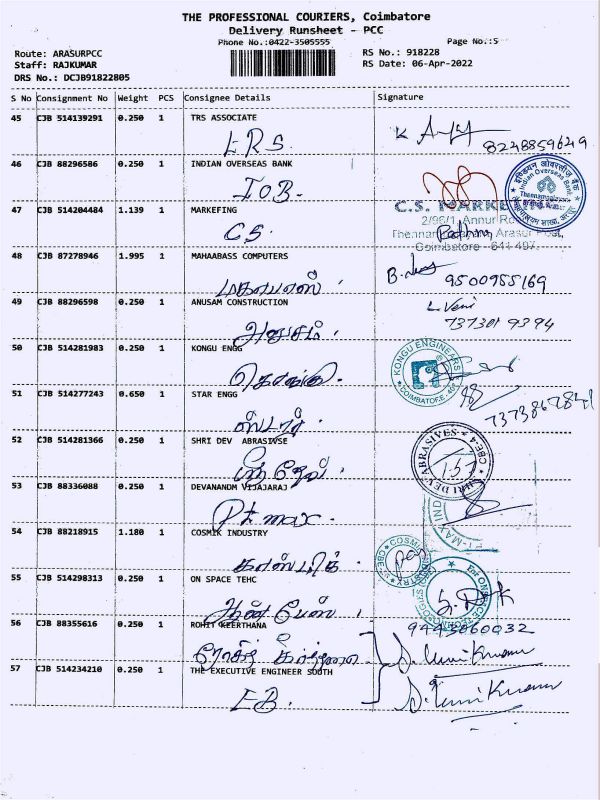 THE PROFESSIONAL COURIERS, Coimbatore
Delivery Runsheet - PCC
Phone No.:0422-3505555 Page No.:5
Route: ARASURPCC RS No.: 918228
Staff: RAJKUMAR RS Date: 06-Apr-2022
DRS No.: DCJB91822805
S No Consignment No Weight PCS Consignee Details Signature
45 CJB 514139291 0.250 1 TRS ASSOCIATE
8248859649
46 CJB 88296586 0.250 1 INDIAN OVERSEAS BANK
IOB.
इंडियन ओवरसीज़ बैंक
Indian Overseas Bank
47 CJB 514204484 1.139 1 MARKEFING
CS.
C.S. MARKE
2/96/1, Annur Ro
Arasur Post,
Coimbatore - 641 407.
48 CJB 87278946 1.995 1 MAHAABASS COMPUTERS
மகாபாஸ்
9500955169
49 CJB 88296598 0.250 1 ANUSAM CONSTRUCTION
அனுசம்.
L. Veni
737301 9394
50 CJB 514281983 0.250 1 KONGU ENGG
கொங்கு.
KONGU ENGINEARS
51 CJB 514277243 0.650 1 STAR ENGG
ஸ்டார்.
7373867841
52 CJB 514281366 0.250 1 SHRI DEV ABRASIVSE
ஸ்ரீ தேவ்.
SHRI DEV ABRASIVES
CBE-4
53 CJB 88336088 0.250 1 DEVANANDM VIJAJARAJ
54 CJB 88218915 1.180 1 COSMIK INDUSTRY
காஸ்மிக்.
55 CJB 514298313 0.250 1 ON SPACE TEHC
ஆன் பேஸ்.
56 CJB 88355616 0.250 1 ROHIT KEERTHANA
ரோகித் கீர்த்தனா
9443060032
57 CJB 514234210 0.250 1 THE EXECUTIVE ENGINEER SOUTH
EB.